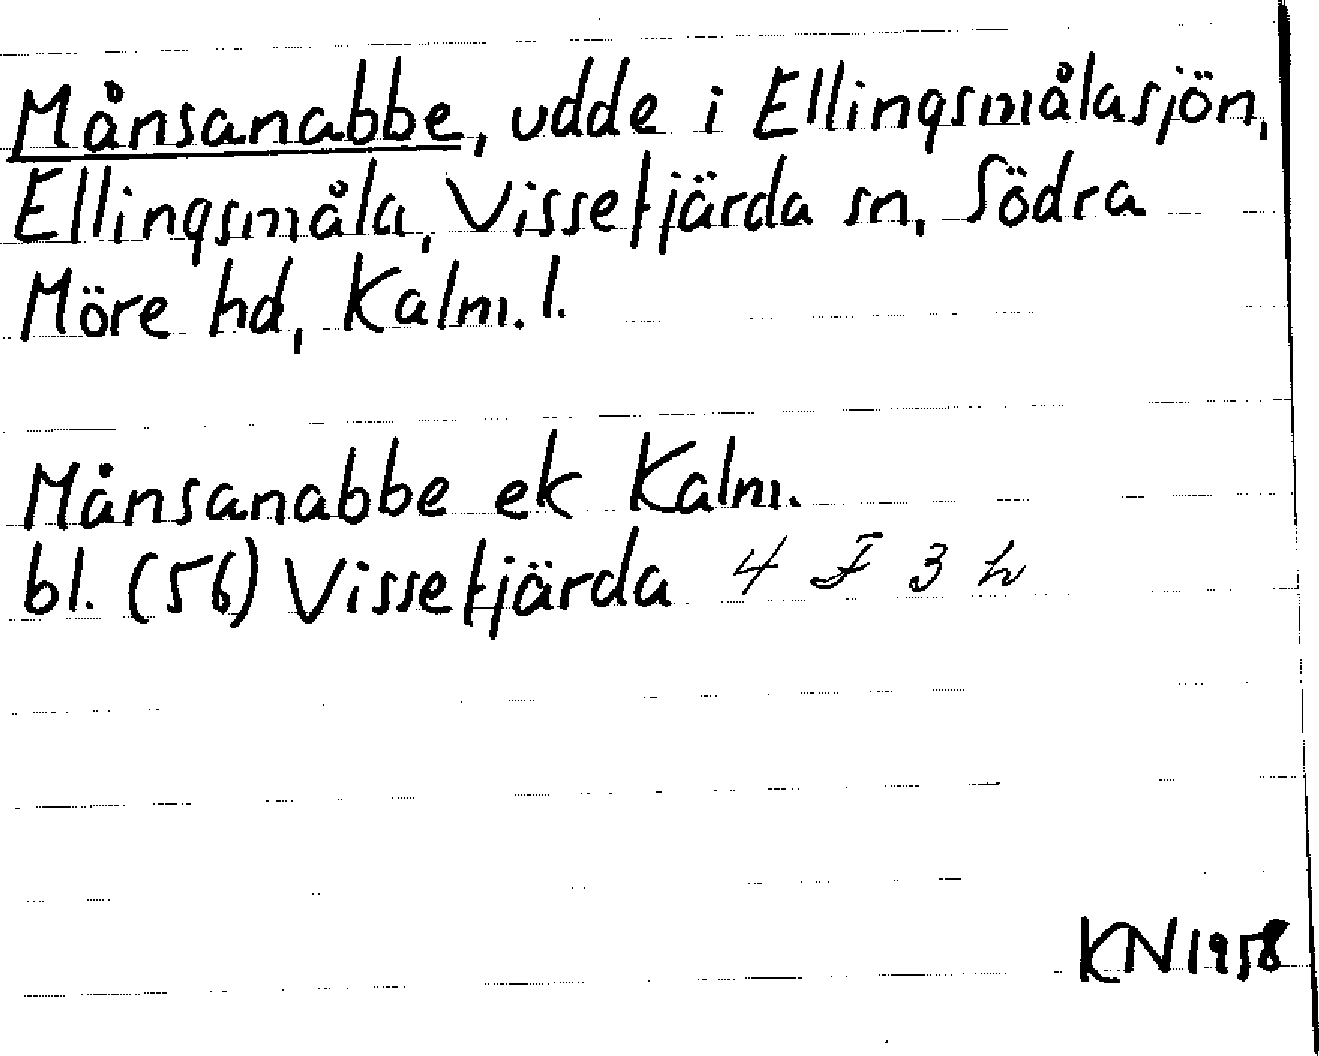 Månsanabbe, udde i Ellingsmålasjön,
Ellingsmåla, Vissefjärda sn, Södra
Möre hd, Kalm. l.
Månsanabbe ek Kalm.
bl. (56) Vissefjärda 4 F 3 h
KN 1958